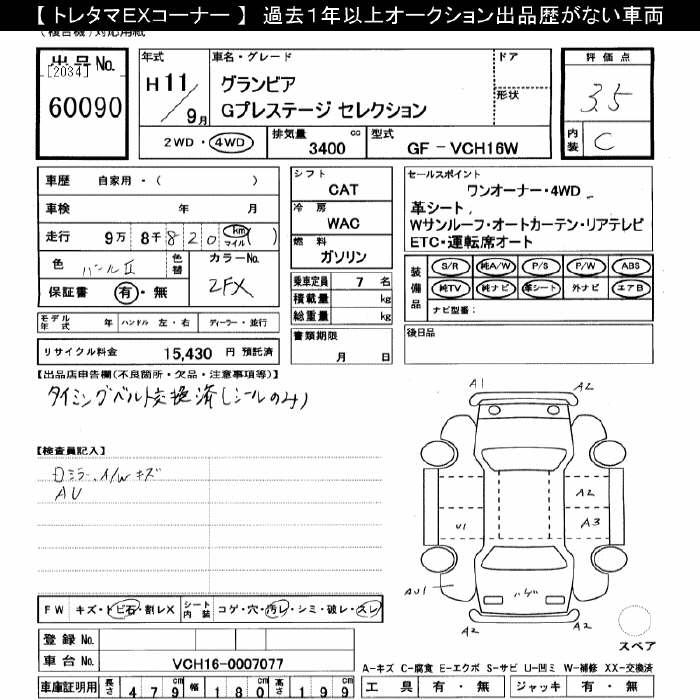 【 トレタマEXコーナー 】 過去1年以上オークション出品歴がない車両
(複合機)対応用紙
出品 No.
[2034]
60090
年式
H 11 / 9月
車名・グレード
グランビア
Gプレステージ セレクション
ドア
形状
2WD ・ 4WD
排気量 3400 cc
型式 GF − VCH16W
評価点
3.5
内装 C
車歴 自家用 ・ ( )
車検 年 月
走行 9万 8千 8 2 0 km マイル ( )
色 パールⅡ
色替
カラーNo.
2FX
保証書 有 ・ 無
モデル年式 年 ハンドル 左 ・ 右 ディーラー ・ 並行
リサイクル料金 15,430 円 預託済
シフト
CAT
冷房
WAC
燃料
ガソリン
乗車定員 7 名
積載量 kg
総重量 kg
書類期限
月 日
セールスポイント
ワンオーナー・4WD
革シート
Wサンルーフ・オートカーテン・リアテレビ
ETC・運転席オート
装備品
S/R 純A/W P/S P/W ABS
純TV 純ナビ 革シート 外ナビ エアB
ナビ型番:
後日品
【出品店申告欄(不良箇所・欠品・注意事項等)】
タイミングベルト交換済(シールのみ)
【検査員記入】
ミラー、A/W キズ
AU
A1
A2
A2
U1
A3
AU1
ハゲ
A2
A2
スペア
FW キズ・トビ石・割レX
シート内装 コゲ・穴・汚レ・シミ・破レ・スレ
登録 No.
車台 No. VCH16-0007077
車庫証明用 長さ 479 cm 幅 180 cm 高さ 199 cm
A-キズ C-腐食 E-エクボ S-サビ U-凹ミ W-補修 XX-交換済
工具 有 ・ 無 ジャッキ 有 ・ 無